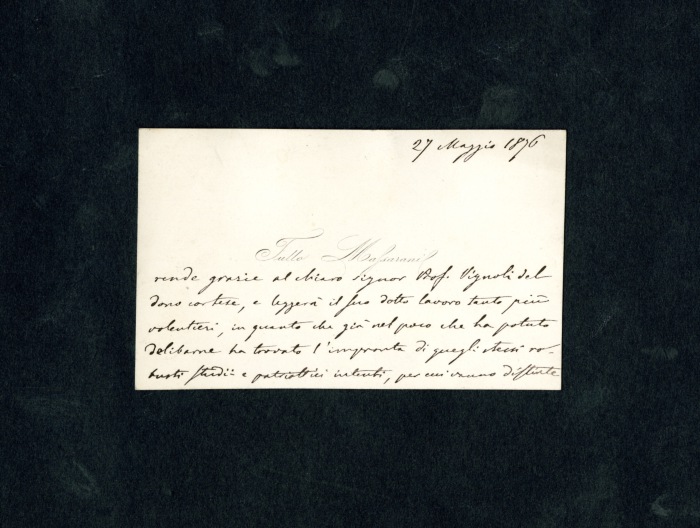 27 Maggio 1876
Tullo Massarani
rende grazie al chiaro signor Prof. Vignoli del
dono cortese, e leggerà il suo dotto lavoro tanto più
volentieri, in quanto che già nel poco che ha potuto
delibarne ha trovato l'impronta di quegli stessi ro-
busti studii e patriottici intenti, per cui vanno distinte